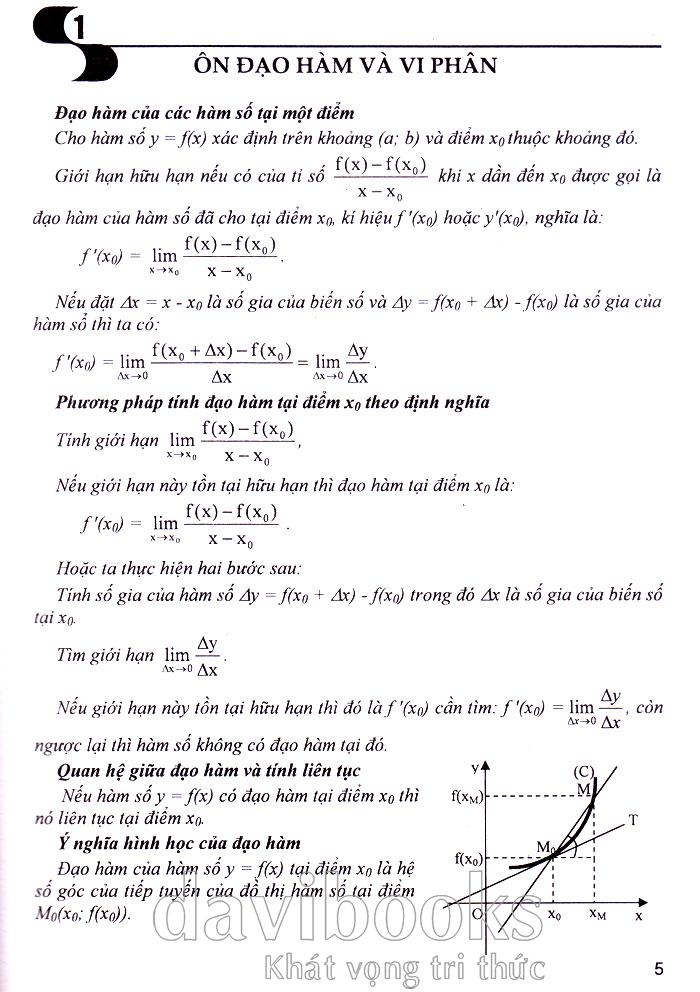 1
ÔN ĐẠO HÀM VÀ VI PHÂN
Đạo hàm của các hàm số tại một điểm
Cho hàm số y = f(x) xác định trên khoảng (a; b) và điểm x₀ thuộc khoảng đó.
Giới hạn hữu hạn nếu có của tỉ số (f(x) − f(x₀))/(x − x₀) khi x dần đến x₀ được gọi là
đạo hàm của hàm số đã cho tại điểm x₀, kí hiệu f '(x₀) hoặc y'(x₀), nghĩa là:
f '(x₀) = lim_{x→x₀} (f(x) − f(x₀))/(x − x₀).
Nếu đặt Δx = x - x₀ là số gia của biến số và Δy = f(x₀ + Δx) - f(x₀) là số gia của
hàm số thì ta có:
f '(x₀) = lim_{Δx→0} (f(x₀ + Δx) − f(x₀))/Δx = lim_{Δx→0} Δy/Δx.
Phương pháp tính đạo hàm tại điểm x₀ theo định nghĩa
Tính giới hạn lim_{x→x₀} (f(x) − f(x₀))/(x − x₀),
Nếu giới hạn này tồn tại hữu hạn thì đạo hàm tại điểm x₀ là:
f '(x₀) = lim_{x→x₀} (f(x) − f(x₀))/(x − x₀).
Hoặc ta thực hiện hai bước sau:
Tính số gia của hàm số Δy = f(x₀ + Δx) - f(x₀) trong đó Δx là số gia của biến số
tại x₀.
Tìm giới hạn lim_{Δx→0} Δy/Δx.
Nếu giới hạn này tồn tại hữu hạn thì đó là f '(x₀) cần tìm: f '(x₀) = lim_{Δx→0} Δy/Δx, còn
ngược lại thì hàm số không có đạo hàm tại đó.
Quan hệ giữa đạo hàm và tính liên tục
Nếu hàm số y = f(x) có đạo hàm tại điểm x₀ thì
nó liên tục tại điểm x₀.
Ý nghĩa hình học của đạo hàm
Đạo hàm của hàm số y = f(x) tại điểm x₀ là hệ
số góc của tiếp tuyến của đồ thị hàm số tại điểm
M₀(x₀; f(x₀)).
y
(C)
f(x_M)
M
T
M₀
f(x₀)
O
x₀
x_M
x
davibooks
Khát vọng tri thức
5